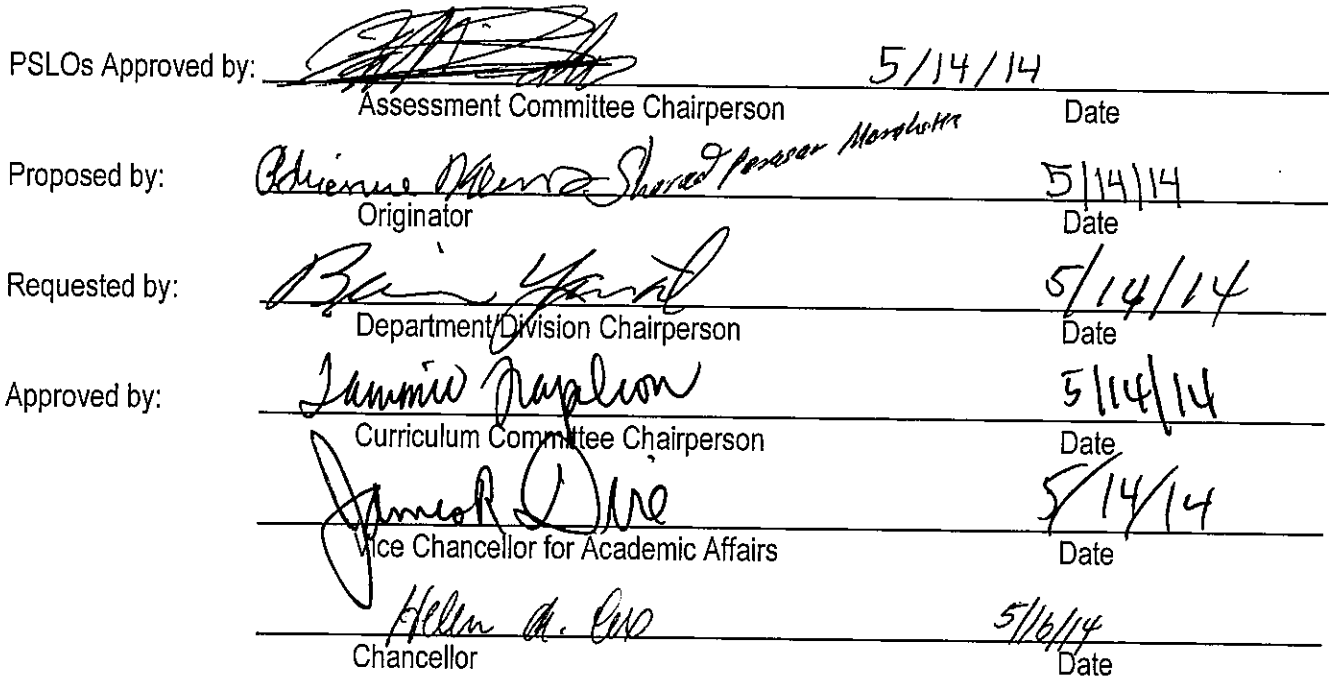 PSLOs Approved by: 5/14/14
Assessment Committee Chairperson Date
Proposed by: Adrienne Sharad Parasar 5/14/14
Originator Date
Requested by: Brian 5/14/14
Department/Division Chairperson Date
Approved by: Tammie Napoleon 5/14/14
Curriculum Committee Chairperson Date
James R Dire 5/14/14
Vice Chancellor for Academic Affairs Date
Helen A. Cox 5/16/14
Chancellor Date